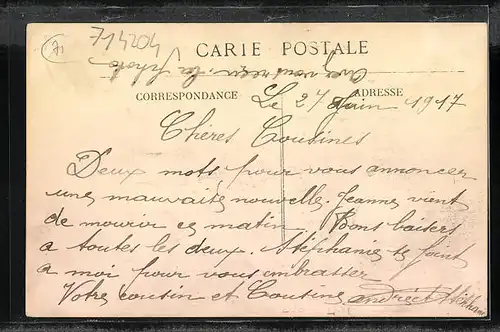 71
714204
CARIE POSTALE
Avez vous reçu la photo
CORRESPONDANCE
ADRESSE
Le 27 Juin 1917
Cheres Cousines
Deux mots pour vous annoncer
une mauvaite nouvelle. Jeanne vient
de mourir ce matin. Bons baisers
a toutes les deux. Stéphanie se joint
a moi pour vous embrasser
Votre cousin et Cousine andré et Stéphanie